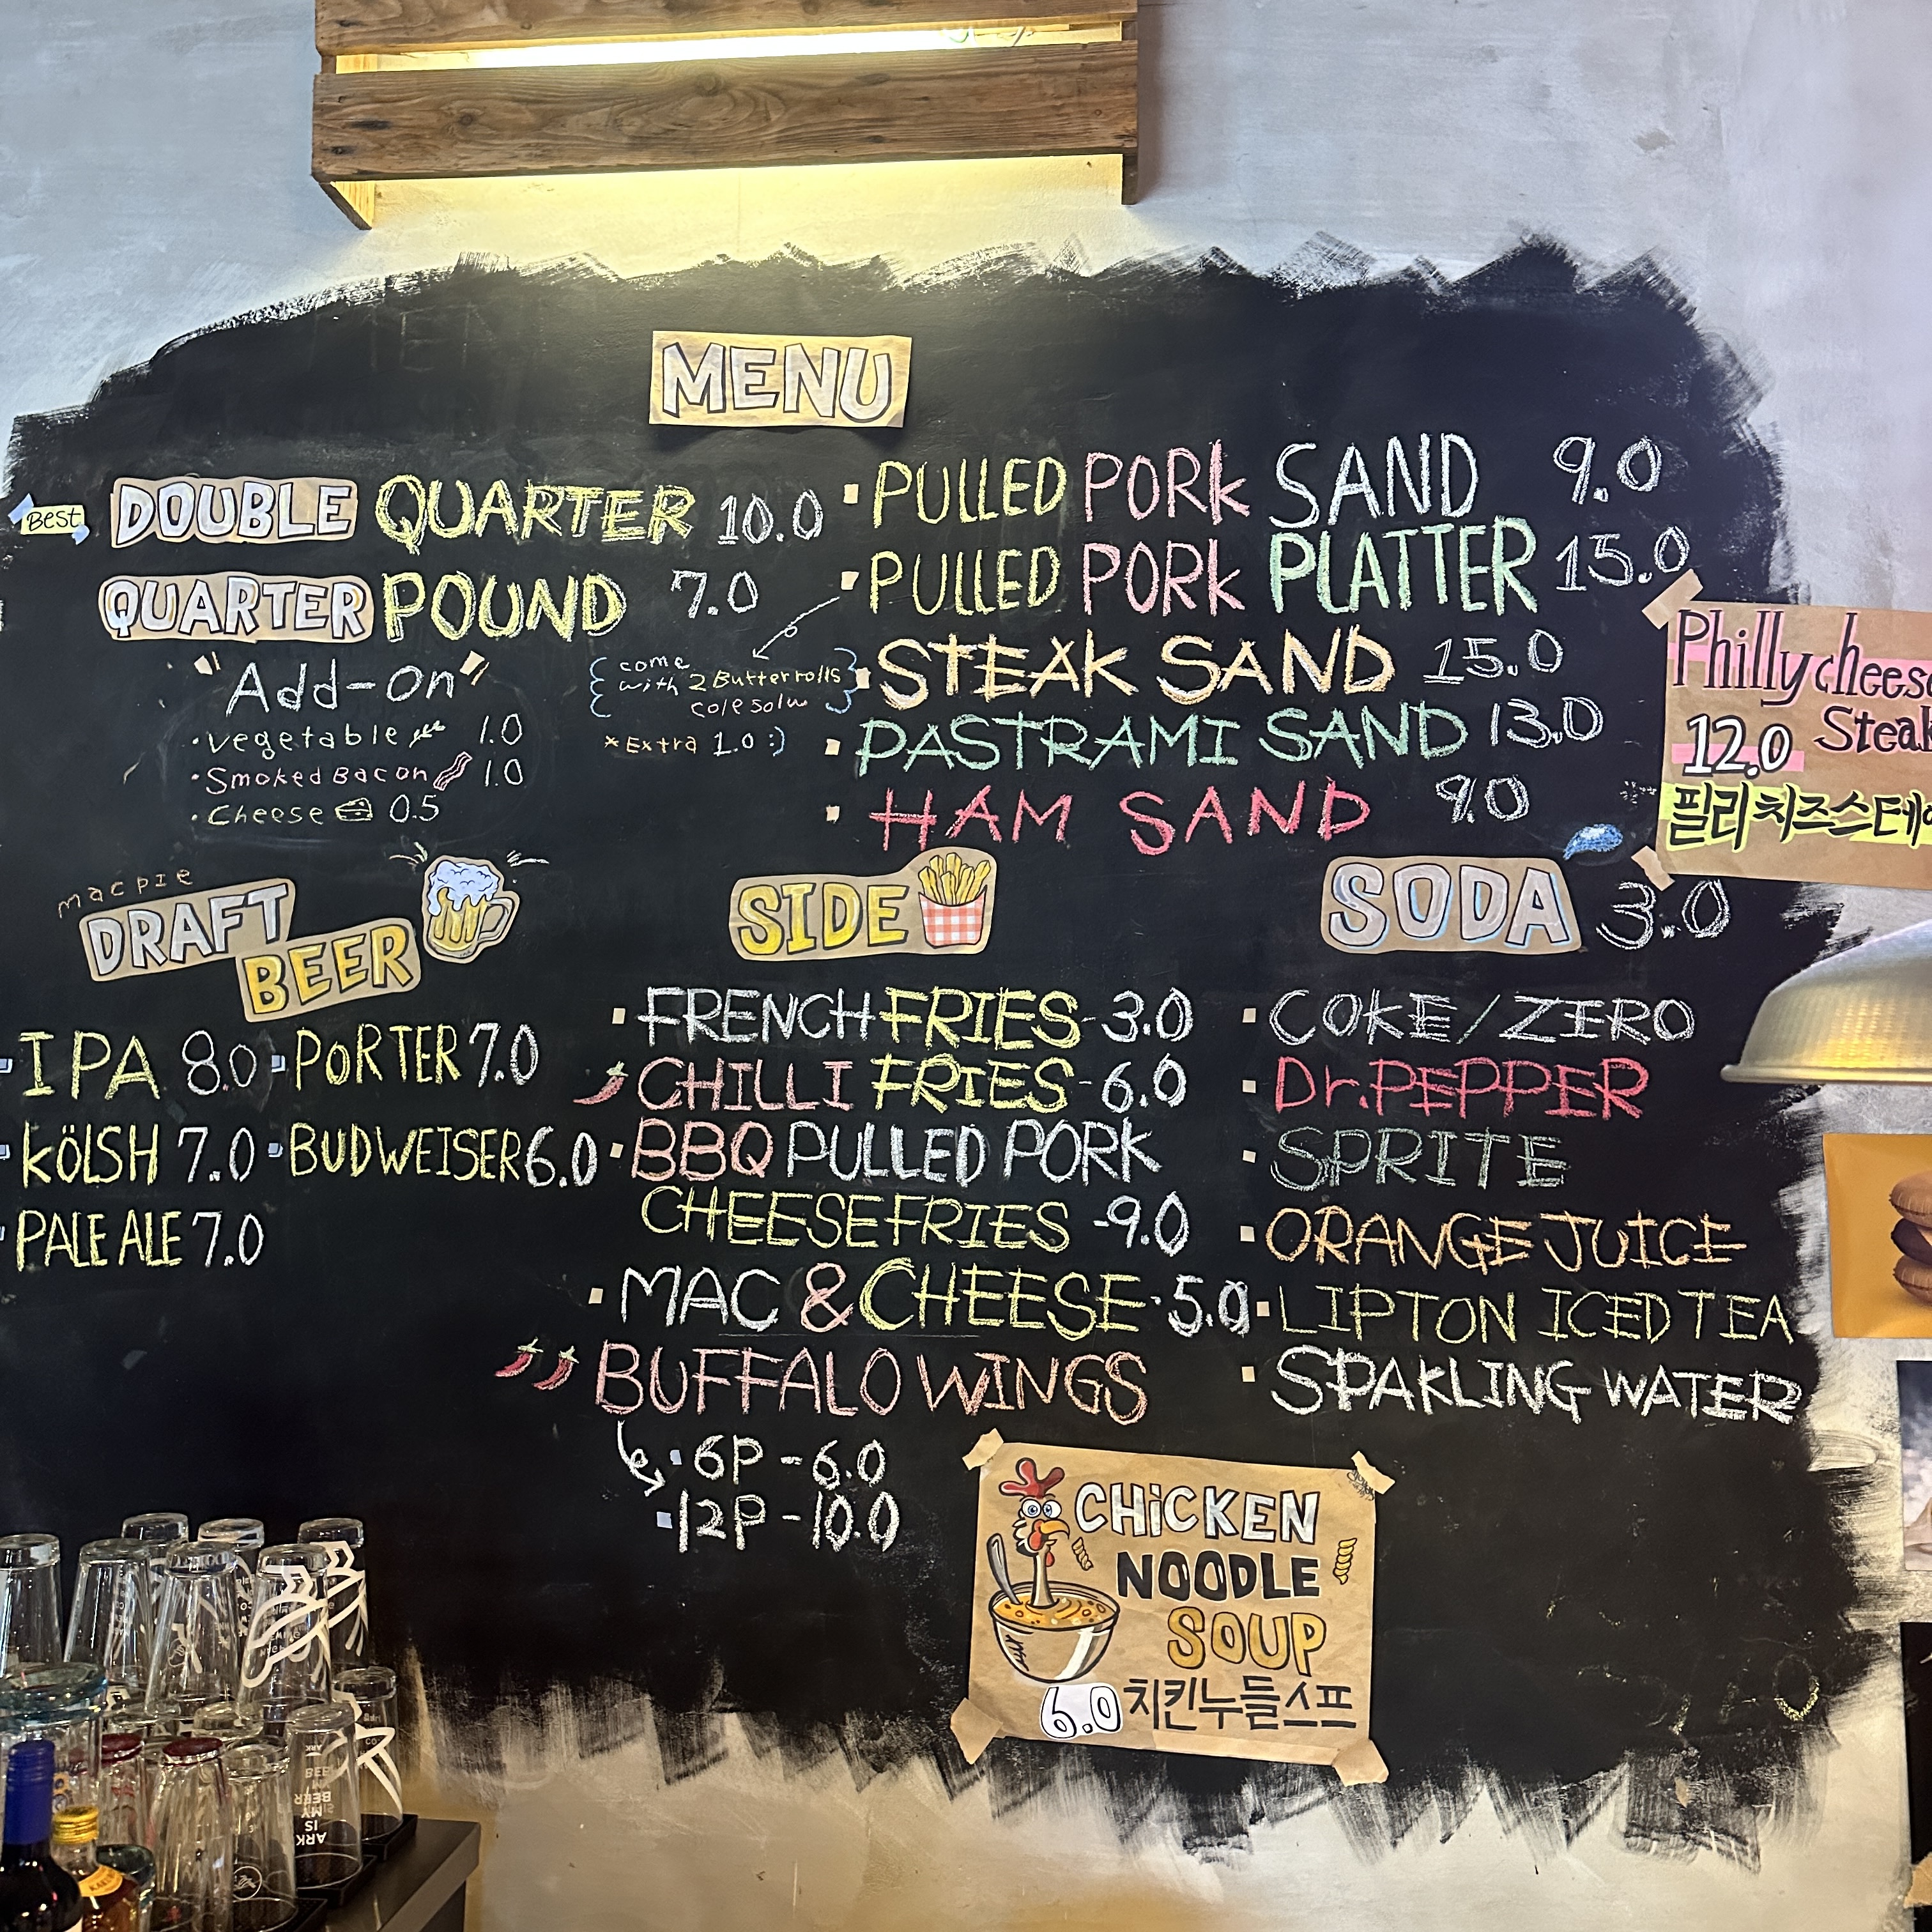 MENU
BEST
DOUBLE QUARTER 10.0
QUARTER POUND 7.0
"Add-on"
·vegetable 1.0
·Smoked Bacon 1.0
·Cheese 0.5
PULLED PORK SAND 9.0
PULLED PORK PLATTER 15.0
come
with 2 Butter rolls
cole solw
*Extra 1.0 :)
STEAK SAND 15.0
PASTRAMI SAND 13.0
HAM SAND 9.0
Philly cheese
12.0 Steak
필리치즈스테
macpie
DRAFT
BEER
IPA 8.0 PORTER 7.0
KÖLSH 7.0 BUDWEISER 6.0
PALE ALE 7.0
SIDE
FRENCH FRIES - 3.0
CHILLI FRIES - 6.0
BBQ PULLED PORK
CHEESE FRIES - 9.0
MAC & CHEESE - 5.0
BUFFALO WINGS
6P - 6.0
12P - 10.0
SODA 3.0
COKE/ZERO
Dr.PEPPER
SPRITE
ORANGE JUICE
LIPTON ICED TEA
SPAKLING WATER
CHiCKEN
NOODLE
SOUP
6.0 치킨누들스프